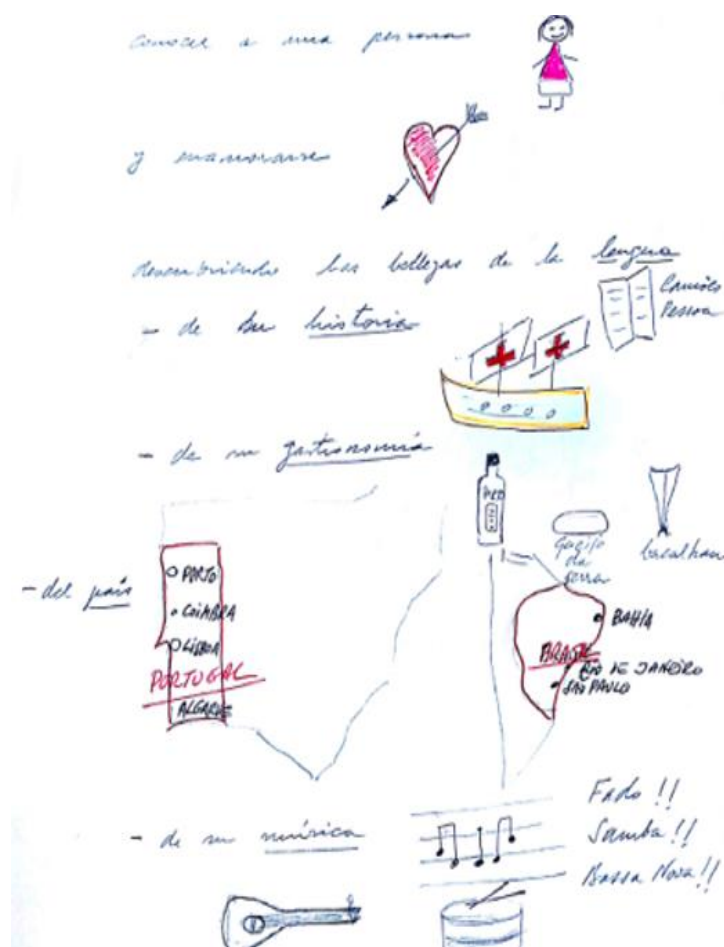 conocer a una persona
y enamorarse
descubriendo las bellezas de la lengua
Camões
Pessoa
- de su historia
- de su gastronomía
Queijo
da
serra
bacalhau
- del país
PORTO
COIMBRA
LISBOA
PORTUGAL
ALGARVE
BAHIA
BRASIL
RIO DE JANEIRO
SÃO PAULO
- de su música
Fado!!
Samba!!
Bossa Nova!!